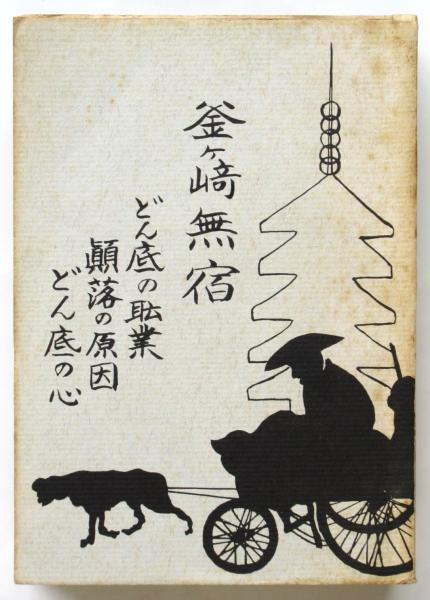 釜ヶ崎無宿
どん底の耻業
顚落の原因
どん底の心